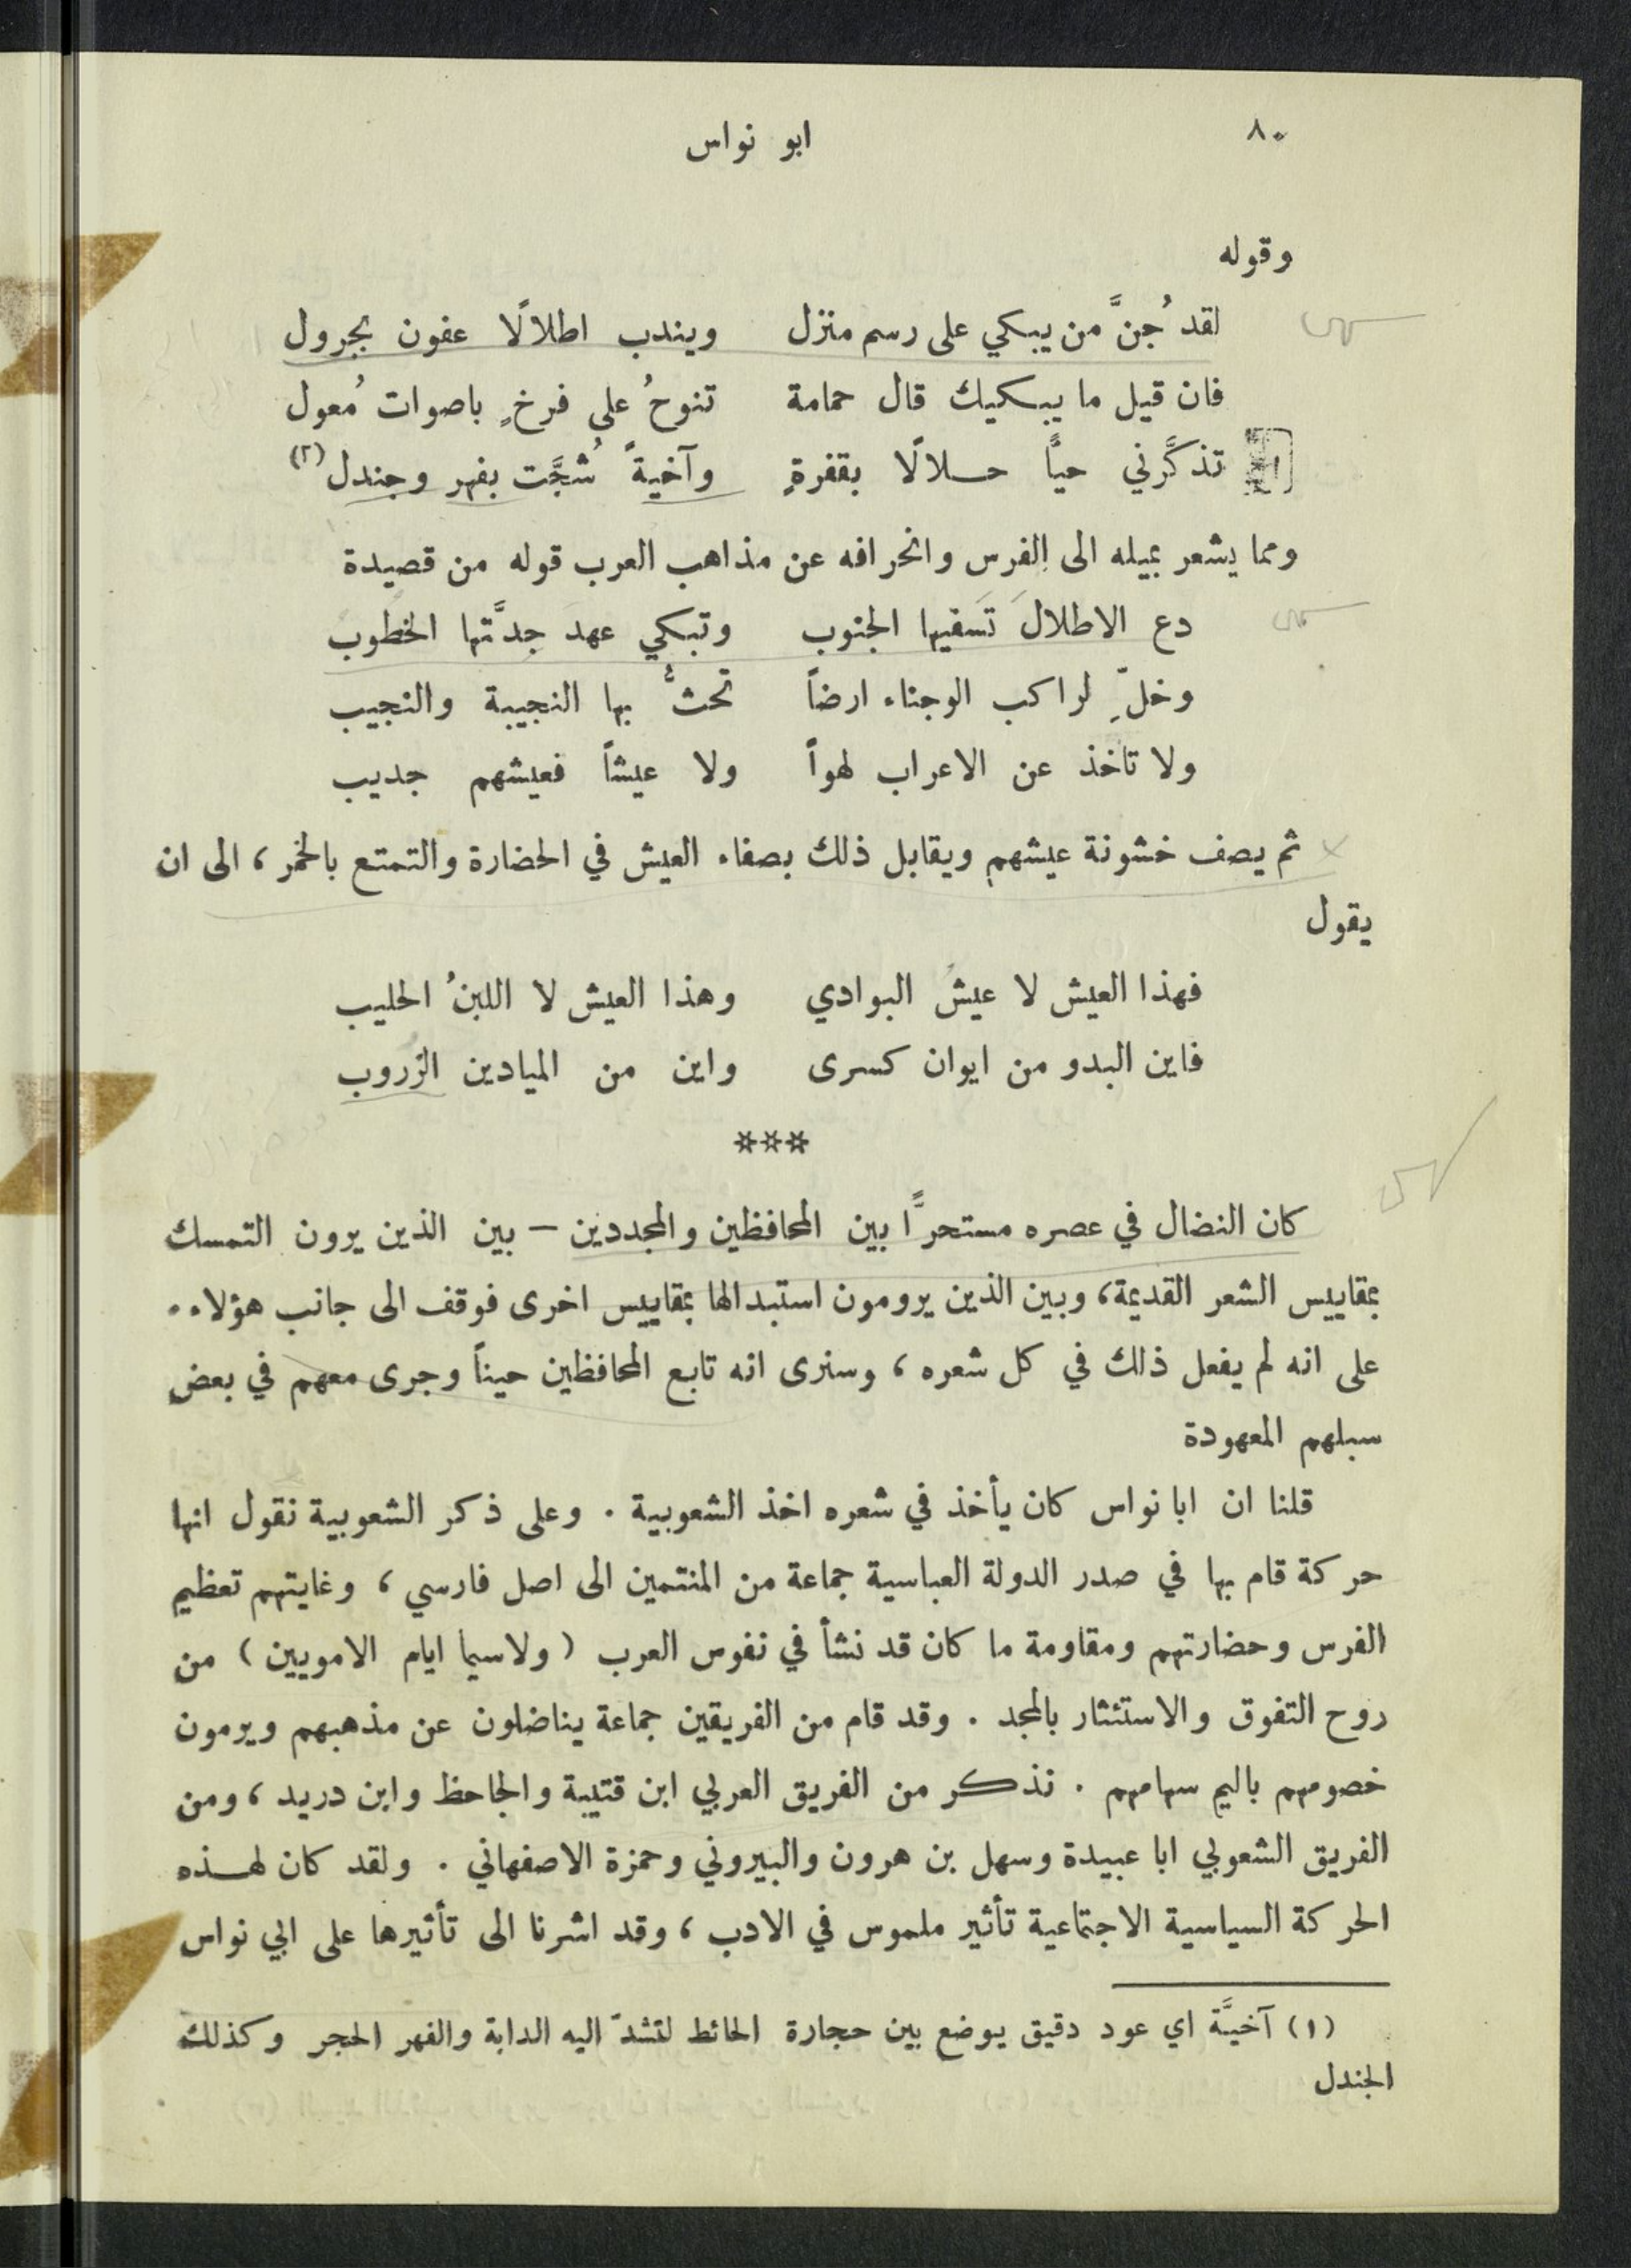 ٨٠
ابو نواس
وقوله
لقد جُنَّ من يبكي على رسم منزل ويندب اطلالًا عفون بجرول
فان قيل ما يبكيك قال حمامة تنوحُ على فرخٍ باصوات مُعول
تذكَّرني حيًّا حلالًا بقفرةٍ وآخيةً شُجَّت بفهر وجندل (٢)
ومما يشعر بميله الى الفرس وانحرافه عن مذاهب العرب قوله من قصيدة
دع الاطلالَ تَسفيها الجنوب وتبكي عهدَ جِدَّتها الخطوب
وخلِّ لراكب الوجناء ارضاً تحثُّ بها النجيبة والنجيب
ولا تاخذ عن الاعراب لهواً ولا عيشاً فعيشهم جديب
ثم يصف خشونة عيشهم ويقابل ذلك بصفاء العيش في الحضارة والتمتع بالخمر، الى ان
يقول
فهذا العيش لا عيشُ البوادي وهذا العيش لا اللبنُ الحليب
فاين البدو من ايوان كسرى واين من الميادين الزُروب
***
كان النضال في عصره مستحرًّا بين المحافظين والمجددين – بين الذين يرون التمسك
بمقاييس الشعر القديمة، وبين الذين يرومون استبدالها بمقاييس اخرى فوقف الى جانب هؤلاء.
على انه لم يفعل ذلك في كل شعره، وسنرى انه تابع المحافظين حيناً وجرى معهم في بعض
سبلهم المعهودة
قلنا ان ابا نواس كان يأخذ في شعره اخذ الشعوبية. وعلى ذكر الشعوبية نقول انها
حركة قام بها في صدر الدولة العباسية جماعة من المنتمين الى اصل فارسي، وغايتهم تعظيم
الفرس وحضارتهم ومقاومة ما كان قد نشأ في نفوس العرب (ولاسيما ايام الامويين) من
روح التفوق والاستئثار بالمجد. وقد قام من الفريقين جماعة يناضلون عن مذهبهم ويرمون
خصومهم باليم سهامهم. نذكر من الفريق العربي ابن قتيبة والجاحظ وابن دريد، ومن
الفريق الشعوبي ابا عبيدة وسهل بن هرون والبيروني وحمزة الاصفهاني. ولقد كان لهذه
الحركة السياسية الاجتماعية تأثير ملموس في الادب، وقد اشرنا الى تأثيرها على ابي نواس
(١) آخيَّة اي عود دقيق يوضع بين حجارة الحائط لتشدّ اليه الدابة والفهر الحجر وكذلك
الجندل